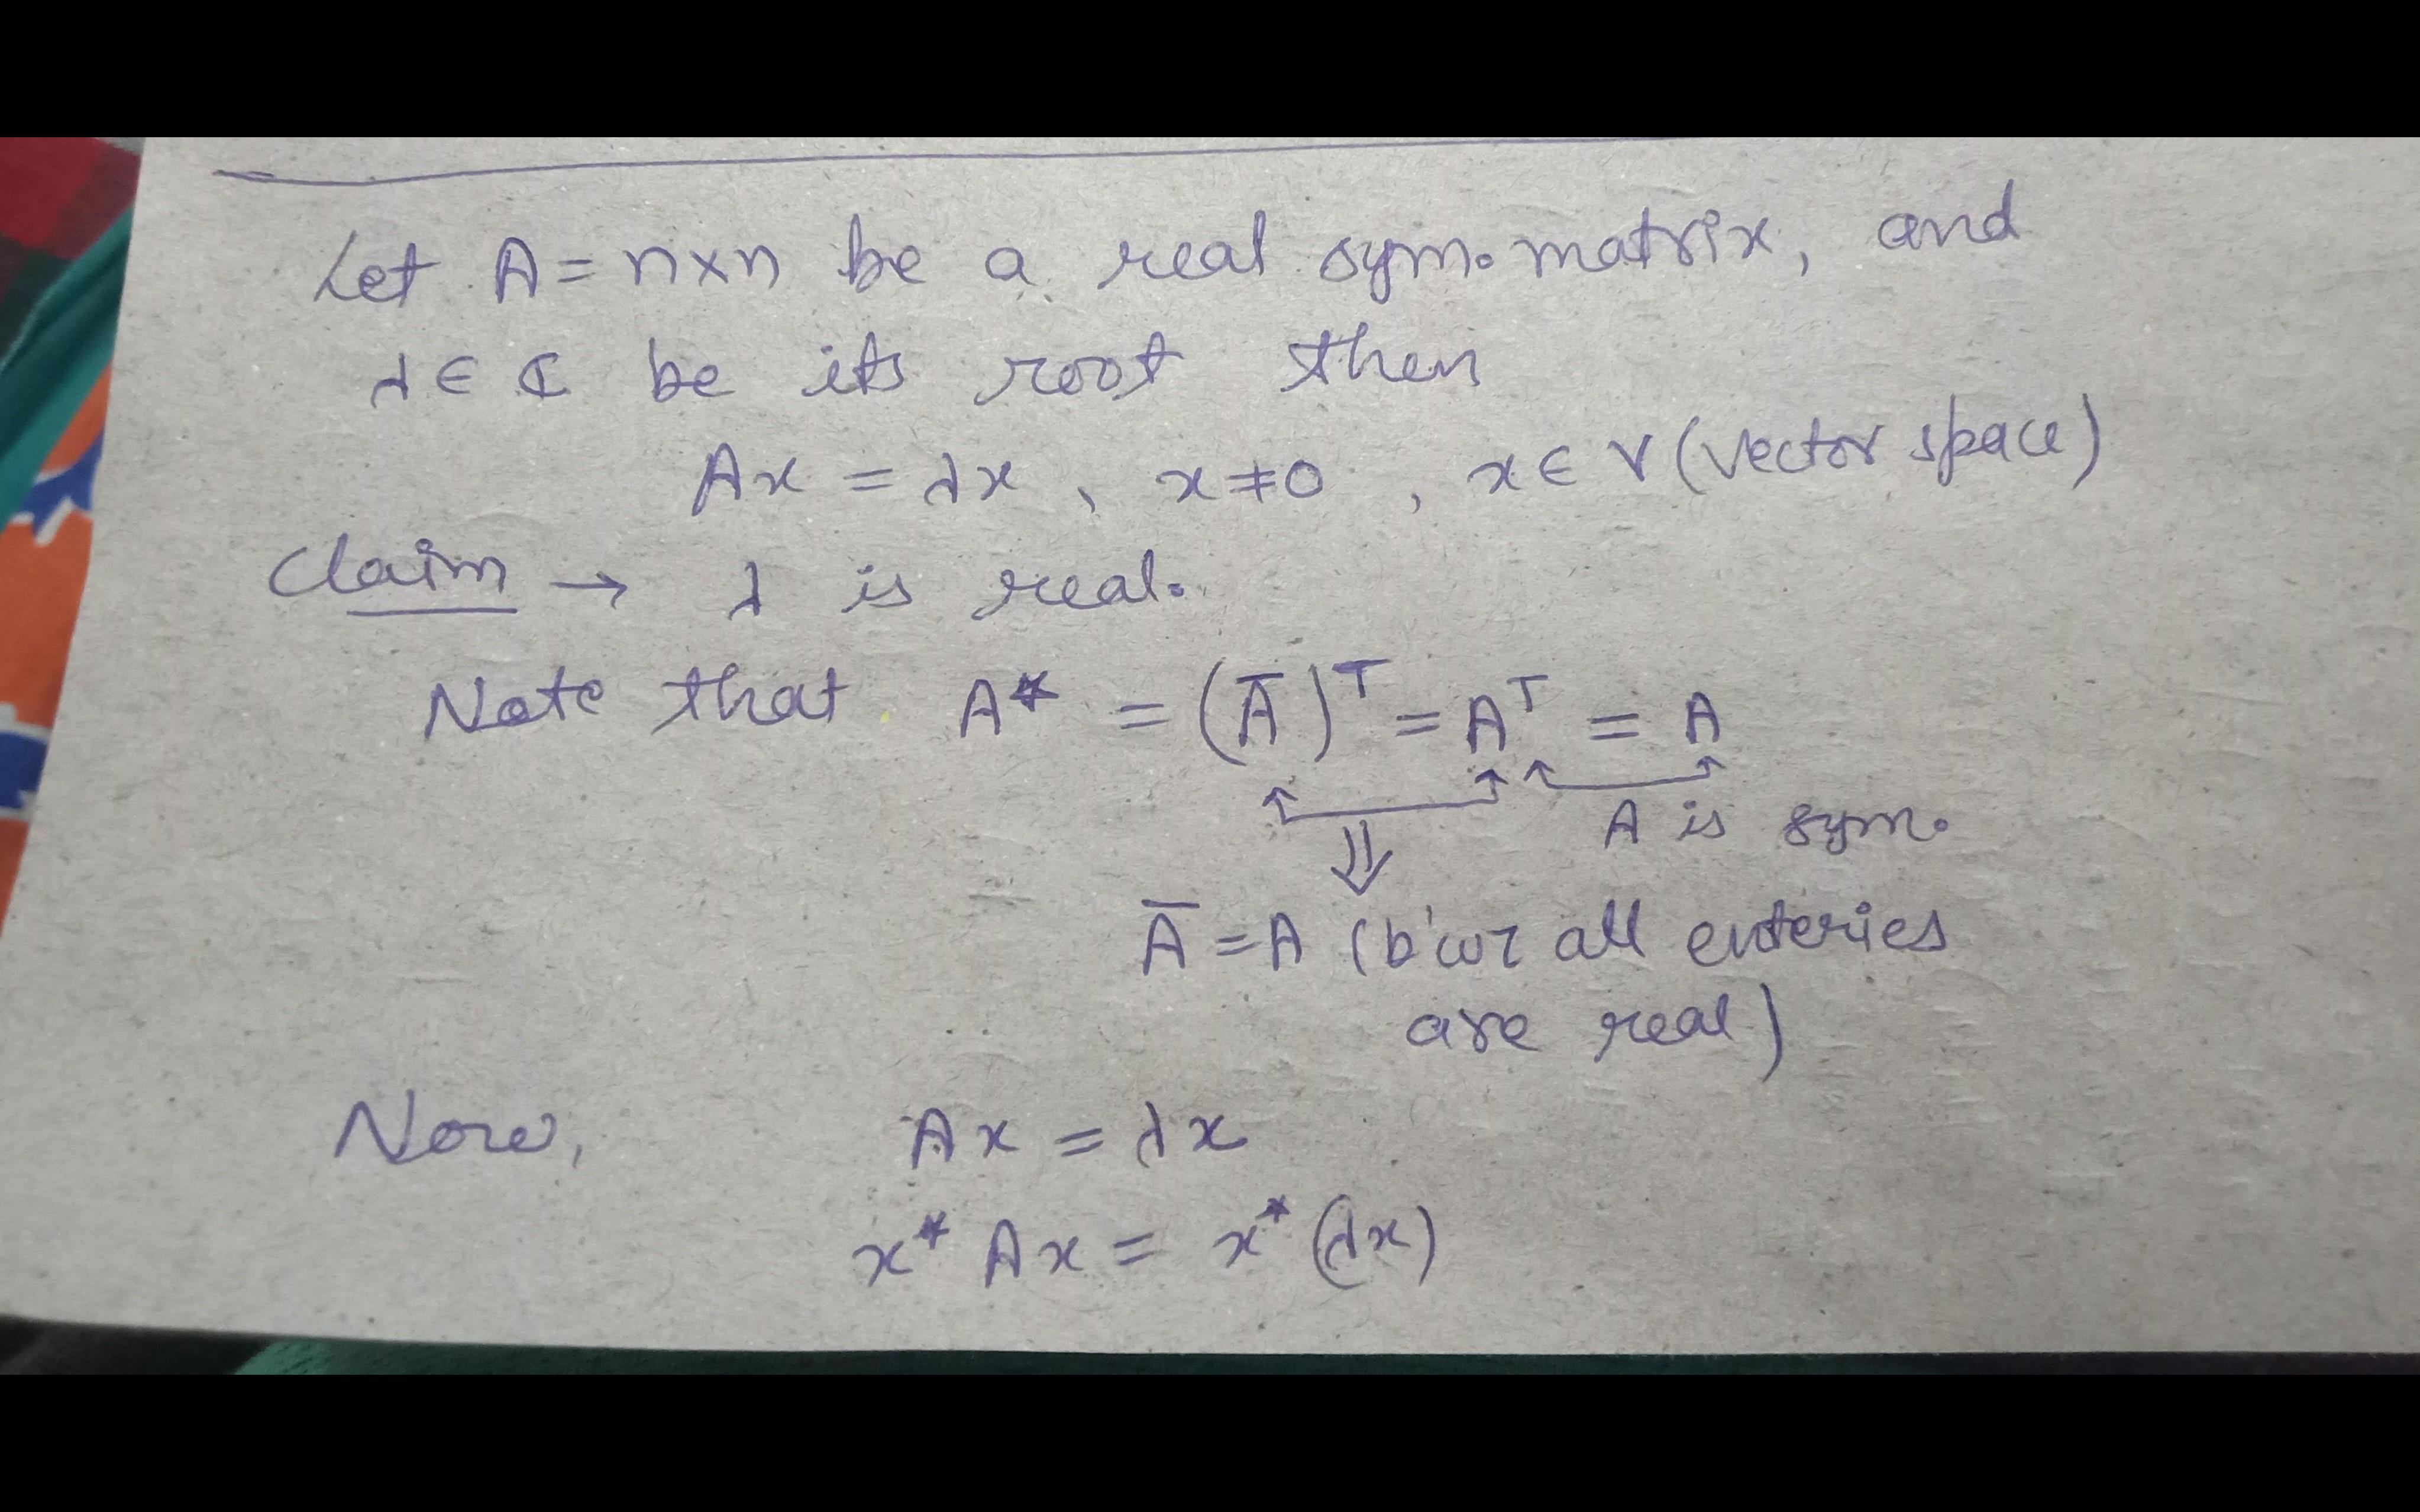 Let A = n×n be a real sym. matrix, and
λ ∈ ℂ be its root then
Ax = λx, x ≠ 0, x ∈ V (vector space)
Claim → λ is real.
Note that A* = (Ā)ᵀ = Aᵀ = A
A is sym.
⇓
Ā = A (b'coz all enteries
are real)
Now, Ax = λx
x* Ax = x* (λx)